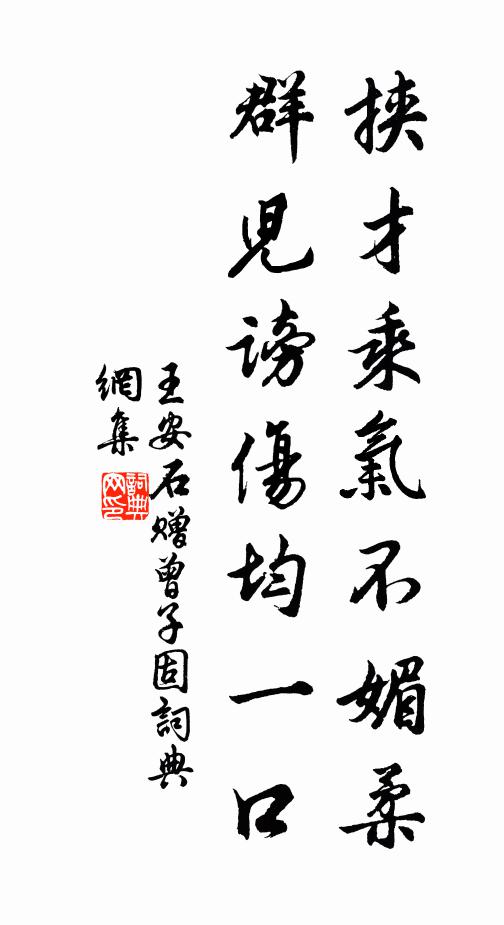 挾才乘氣不媚柔
群児謗傷均一口
王安石赠曾子固詞典
網集
詞典
网印